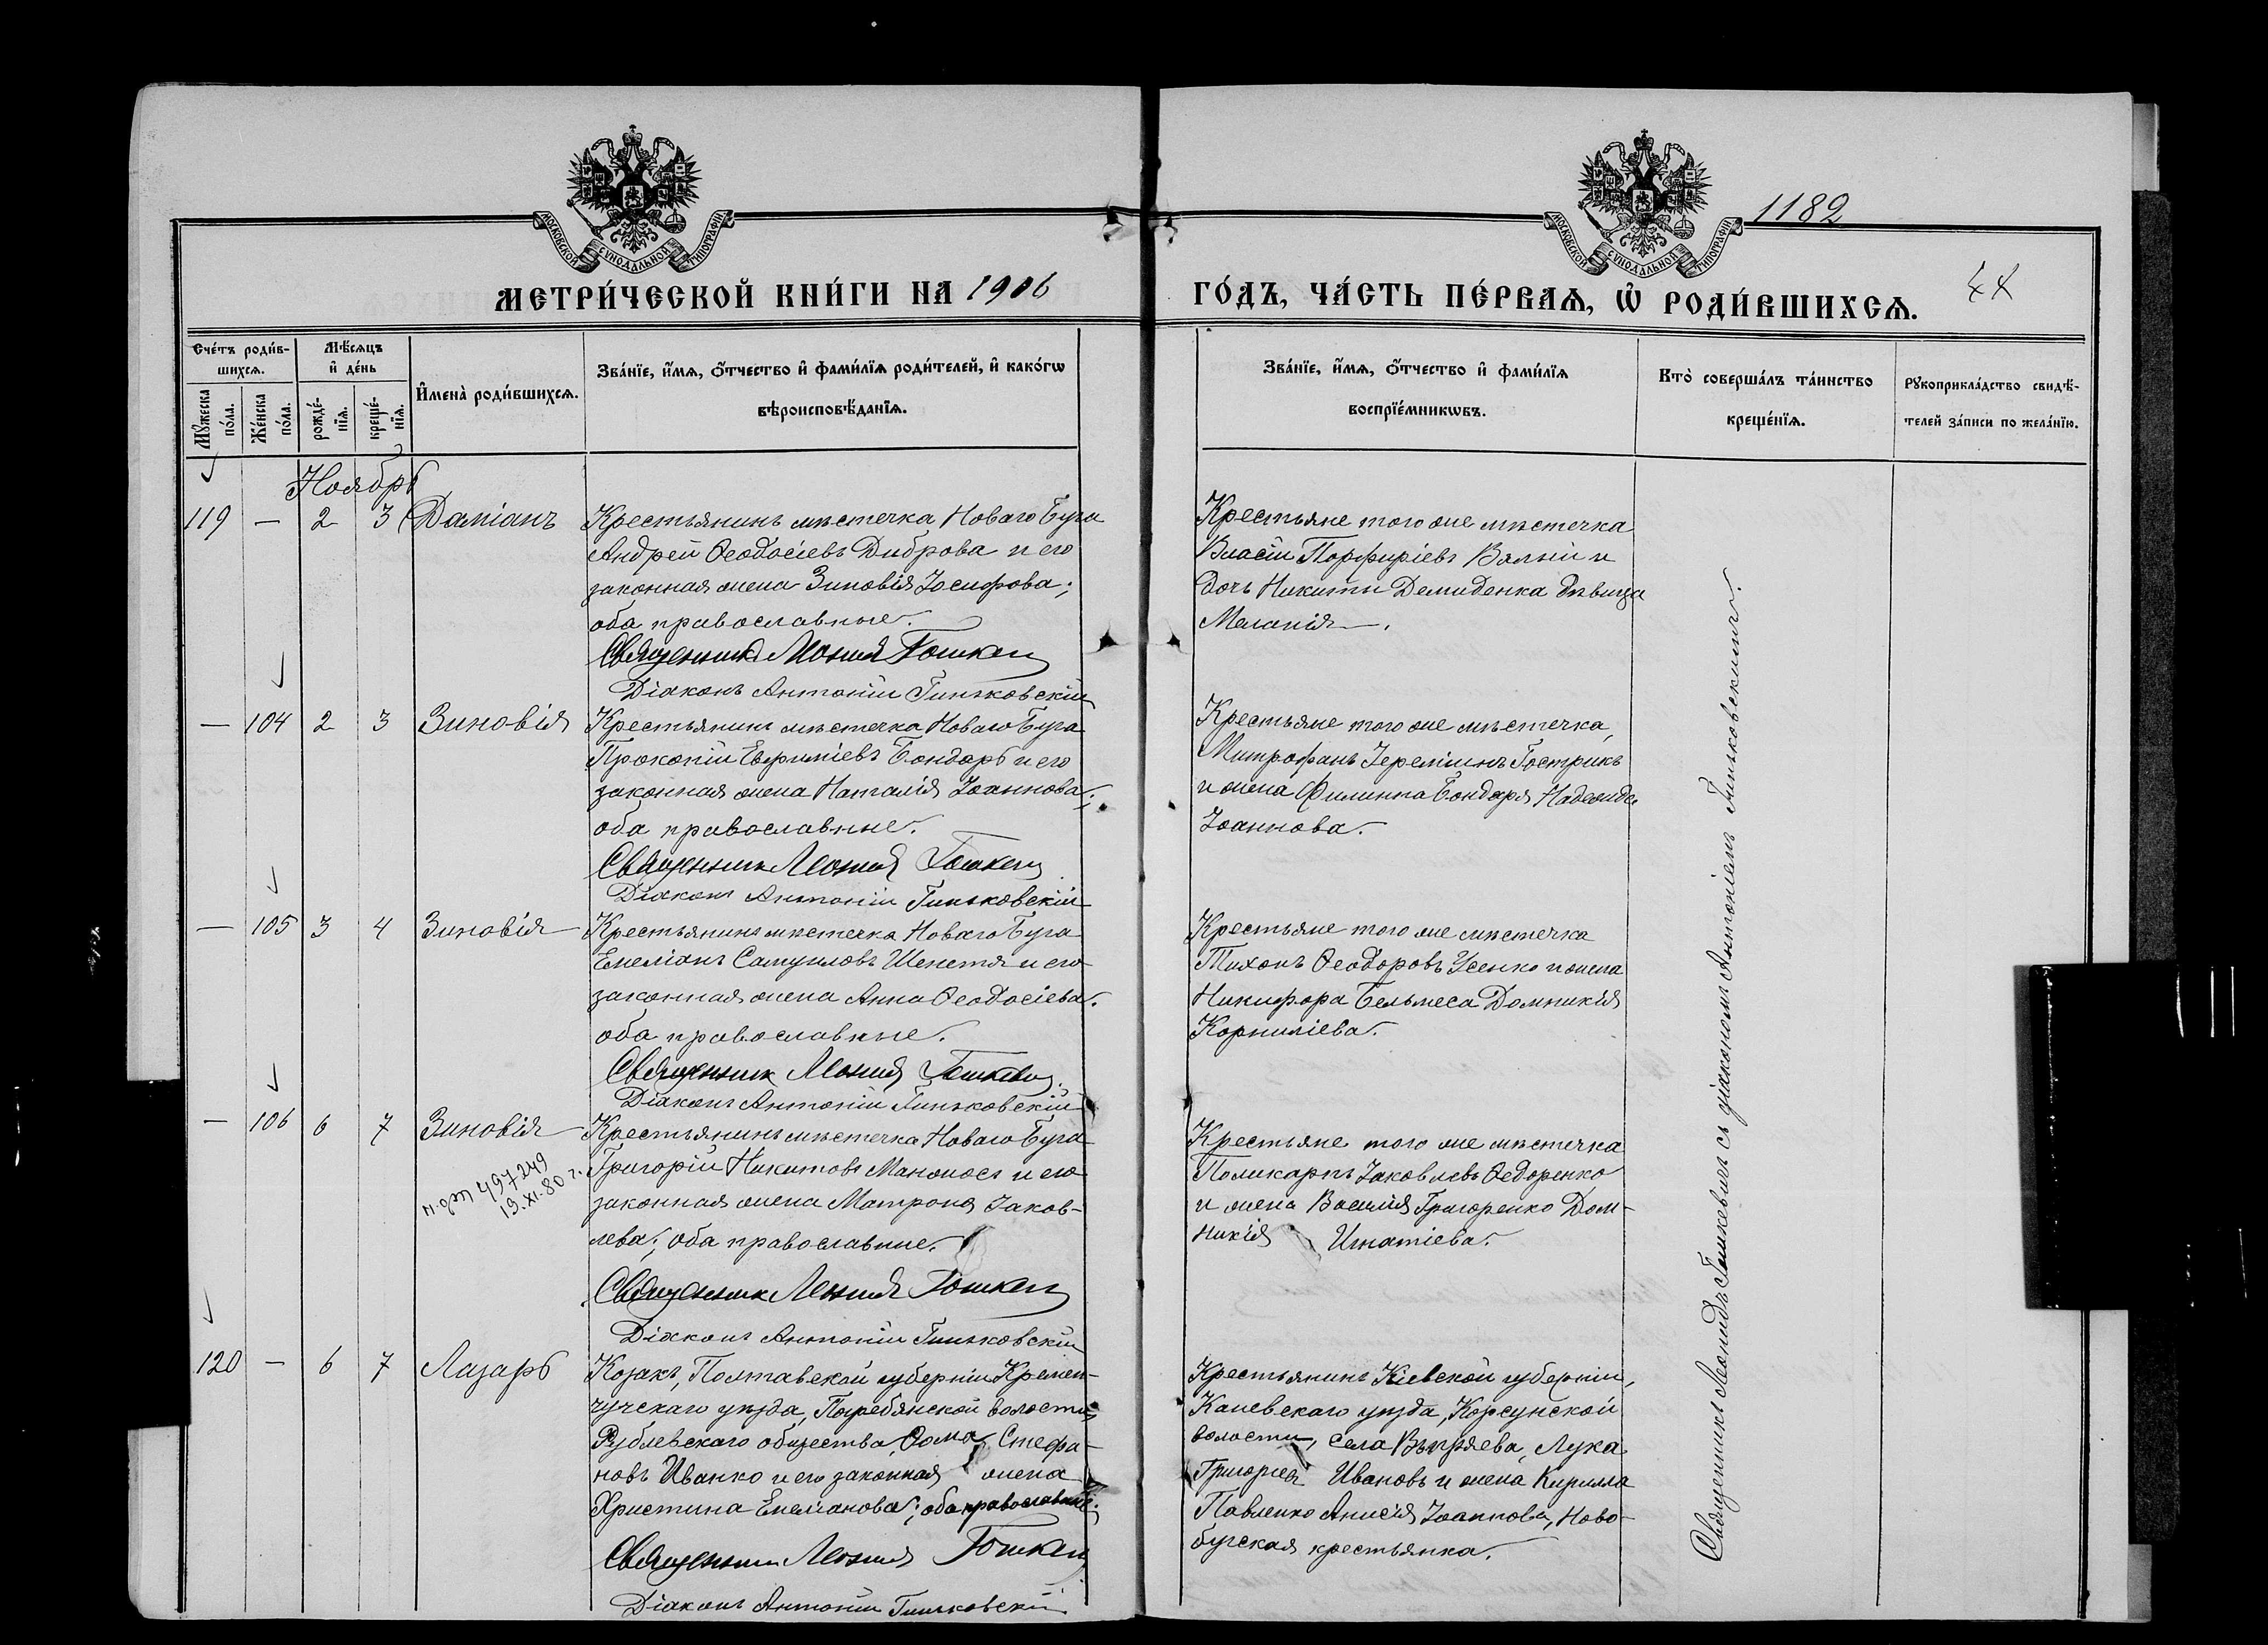 МОСКОВСКОЙ СѴНОДАЛЬНОЙ ТИПОГРАФІИ
МОСКОВСКОЙ СѴНОДАЛЬНОЙ ТИПОГРАФІИ
1182
МЕТРИ́ЧЕСКОЙ КНИ́ГИ НА 1906
ГО́ДЪ, ЧА́СТЬ ПЕ́РВАѦ, Ѡ РОДИ́ВШИХСѦ.
Сче́тъ роди́в-
шихсѧ.
Мꙋ́жеска
по́ла.
Же́нска
по́ла.
Мѣ́сѧцъ
и де́нь
рожде́-
нїѧ.
креще́-
нїѧ.
Имена̀ роди́вшихсѧ.
Зва́нїе, и́мѧ, о́тчество и фами́лїѧ роди́телей, и како́гѡ
вѣроисповѣ́данїѧ.
Зва́нїе, и́мѧ, о́тчество и фами́лїѧ
воспрїе́мникѡвъ.
Кто̀ соверша́лъ та́инство
креще́нїѧ.
Рꙋкоприкла́дство свидѣ́-
телей за́писи по жела́нїю.
Ноябрь
119 — 2 3 Даміанъ
Крестьянинъ мѣстечка Новаго Буга
Андрей Ѳеодосіевъ Диброва и его
законная жена Зиновія Іосифова;
оба православные.
Священникъ Леонид Гошкевич
Діаконъ Антоній Гиньковскій
Крестьяне того же мѣстечка
Власій Порфиріевъ Вялый и
дочь Никиты Демиденка дѣвица
Меланія.
— 104 2 3 Зиновія
Крестьянинъ мѣстечка Новаго Буга
Прокопій Евфиміевъ Бондарь и его
законная жена Наталія Іоаннова;
оба православные.
Священник Леонид Гошкевич
Діаконъ Антоній Гиньковскій
Крестьяне того же мѣстечка,
Митрофанъ Іереміинъ Гострикъ
и жена Филиппа Бондаря Надежда
Іоаннова.
— 105 3 4 Зиновія
Крестьянинъ мѣстечка Новаго Буга
Емеліанъ Самуиловъ Шепетя и его
законная жена Анна Ѳеодосіева.
оба православные.
Священник Леонид Гошкевич.
Діаконъ Антоній Гиньковскій
Крестьяне того же мѣстечка
Тихонъ Ѳеодоровъ Усенко и жена
Никифора Бельмеса Домникія
Корниліева.
— 106 6 7 Зиновія
497249
19.XI-80 г.
Крестьянинъ мѣстечка Новаго Буга
Григорій Никитовъ и его
законная жена Матрона Іаков-
лева; оба православные.
Священник Леонид Гошкевич
Діаконъ Антоній Гиньковскій
Крестьяне того же мѣстечка
Поликарпъ Іаковлевъ Ѳедоренко
и жена Василія Григоренко Дом-
никія Игнатіева.
120 — 6 7 Лазарь
Козакъ, Полтавской губерніи Кремен-
чугскаго уѣзда, Погребянской волости
Рублевскаго общества, Ѳома Стефа-
новъ Иванко и его законная жена
Христина Емеліанова; оба православные.
Священник Леонид Гошкевич
Діаконъ Антоній Гиньковскій
Крестьянинъ Кіевской губерніи,
Каневскаго уѣзда, Корсунской
волости, села Лука
Григорьевъ Ивановъ и жена Кирилла
Павленко Анисія Іоаннова, Ново-
бугская крестьянка.
Священникъ Леонидъ Гошкевичъ съ діакономъ Антоніемъ Гиньковскимъ.